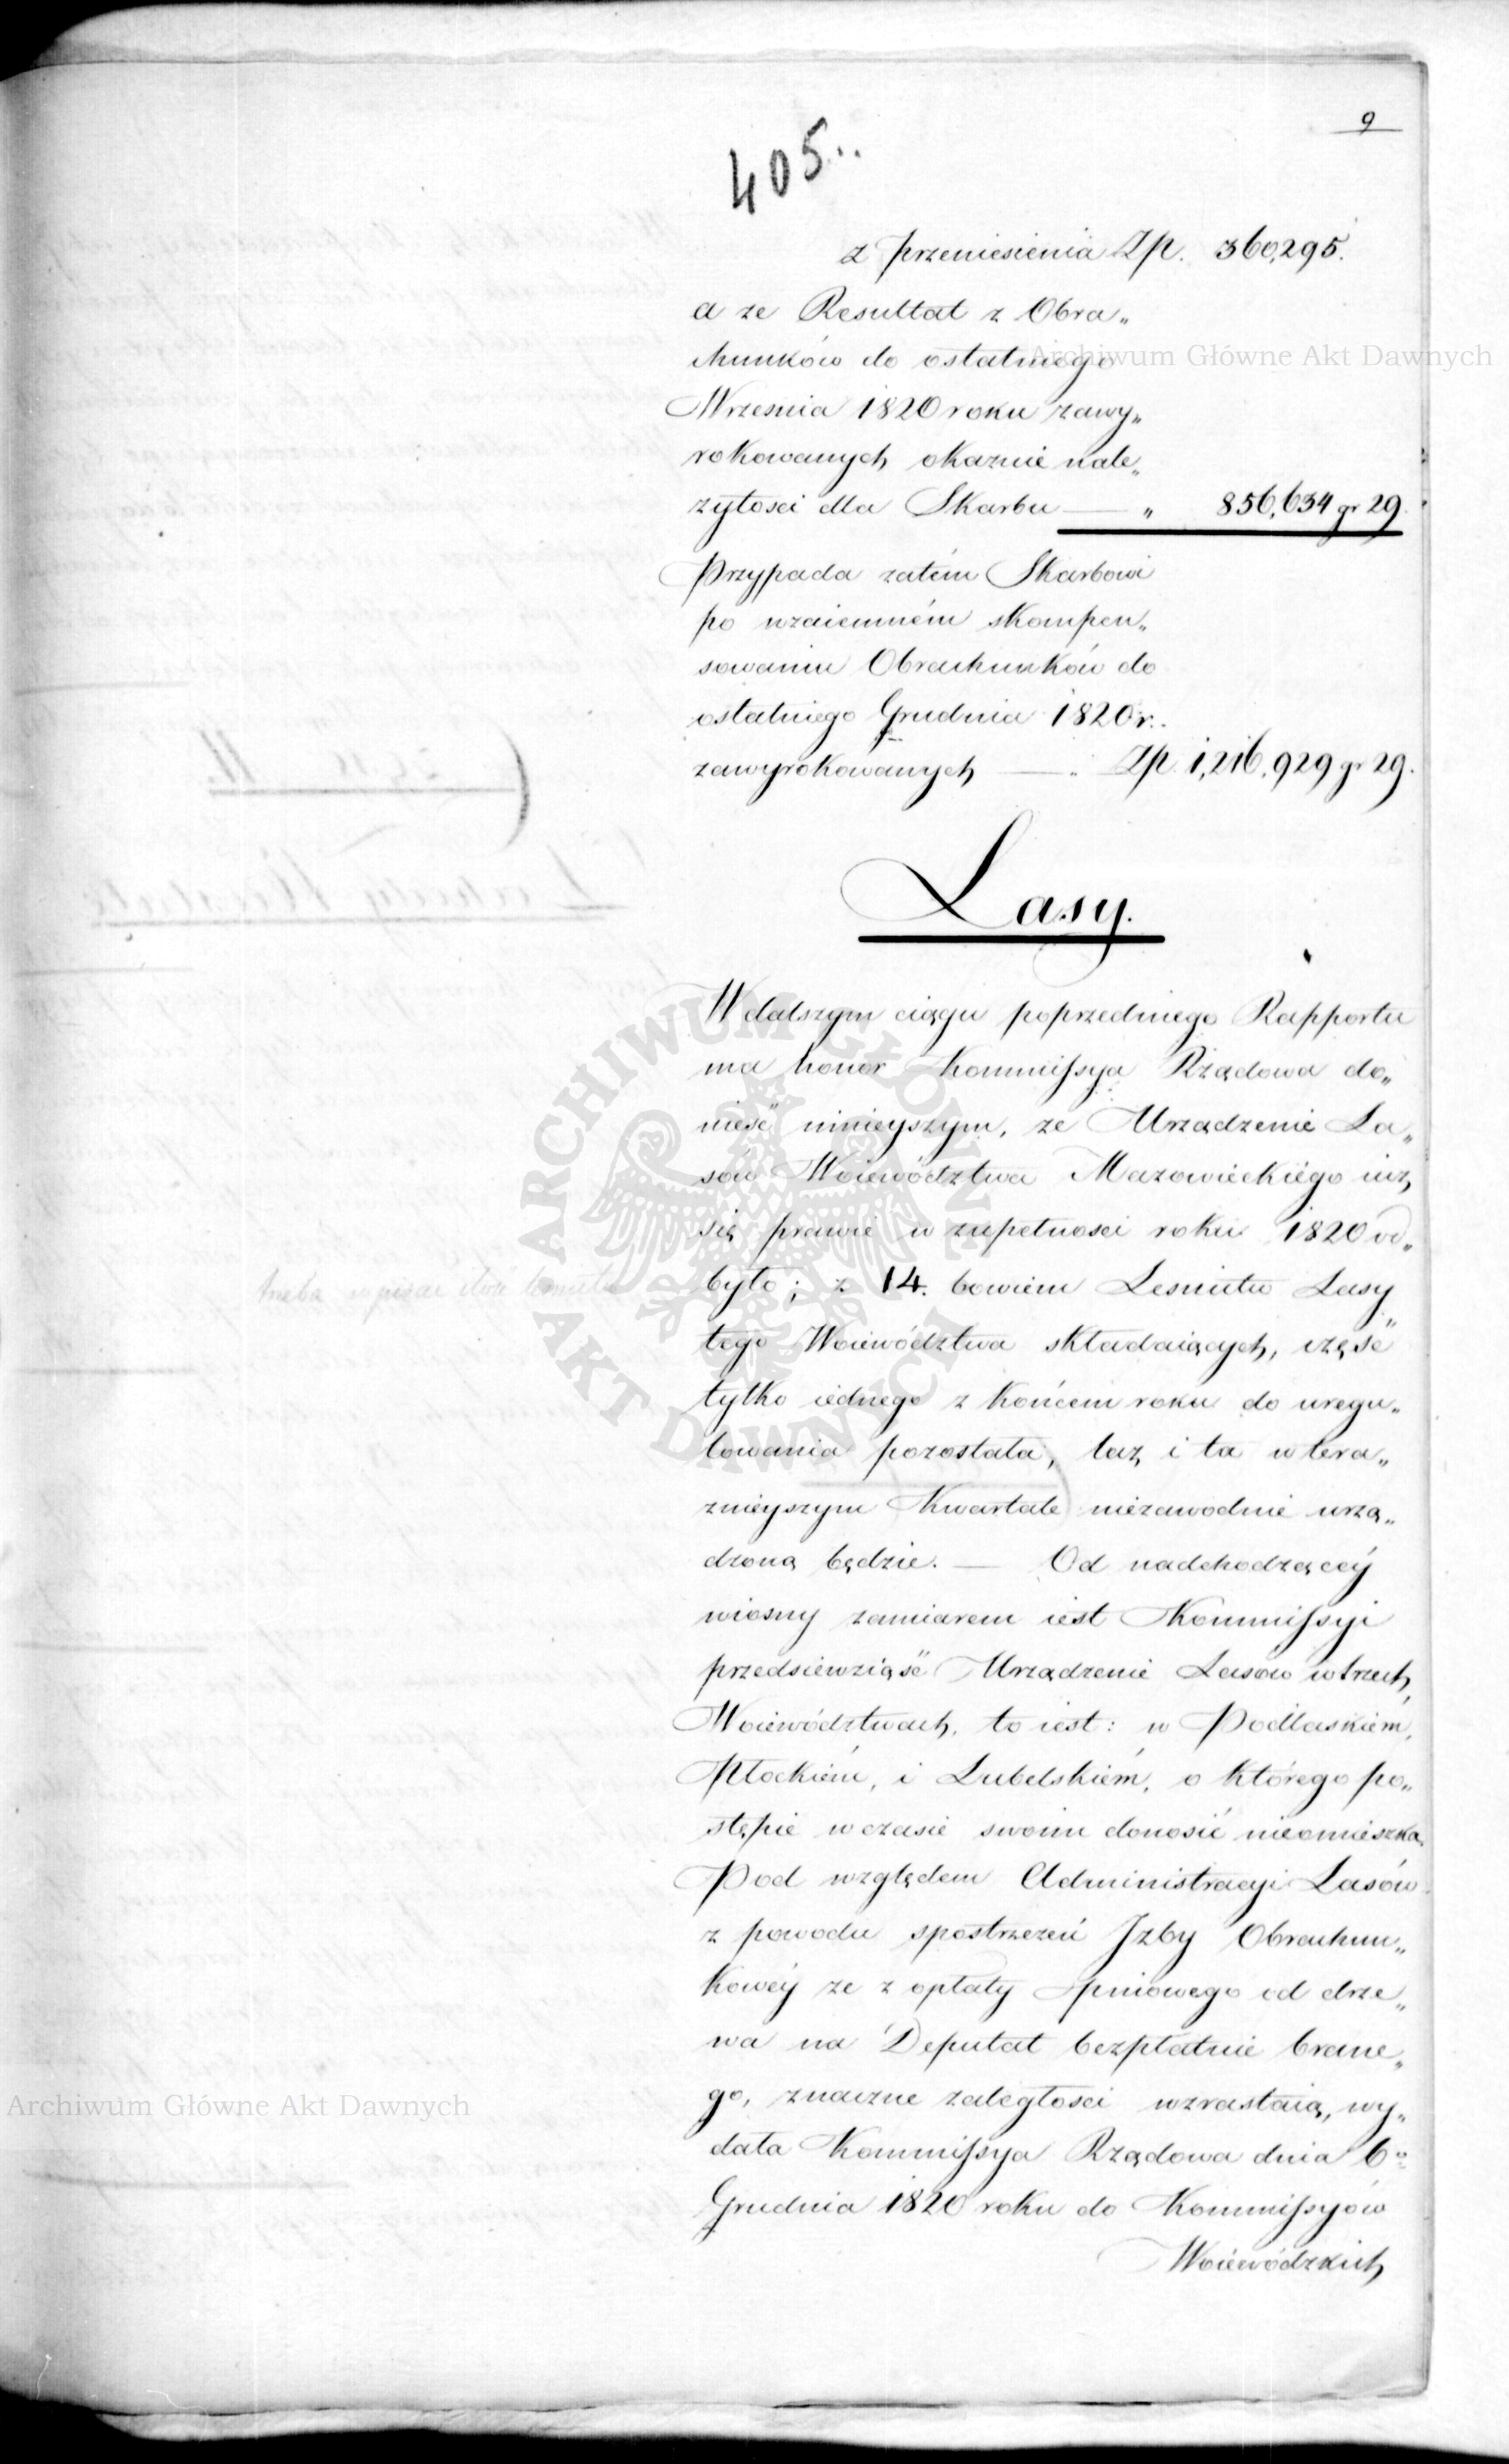 9
405..
z przeniesienia Zp. 360,295.
a ze Resultat z Obra„
chunków do ostatniego
Archiwum Główne Akt Dawnych
Wrzesnia 1820 roku zawy„
rokowanych okaznie nale„
zytosci dla Skarbu — „ 856,634 gr 29.
Przypada zatém Skarbowi
po wzaiemném skompen„
sowaniu Obrachunków do
ostatniego Grudnia 1820 r.
zawyrokowanych — . Zp. 1,216,929 gr 29.
Lasy.
W dalszym ciągu poprzedniego Rapportu
ma honor Kommissya Rządowa do„
nieść ninieyszym, ze Urządzenie La„
sów Woiewództwa Mazowieckiégo iuz
się prawie w zupełnosci roku 1820 od„
było; z 14. bowiem Lesnictw Lasy
tego Woiewództwa składaiących, część
tylko iednego z końcem roku do uregu„
lowania pozostała, lecz i ta w tera„
znieyszym Kwartale niezawodnie urzą„
dzoną będzie. — Od nadchodzącéy
wiosny zamiarem iest Kommissyi
przedsiewziąść Urządzenie Lasów w trzech
Woiewództwach, to iest: w Podlaskiém,
Płockiém, i Lubelskiém, o którego po„
stępie w czasie swoim donosić nieomieszka
Pod względem Administracyi Lasów
z powodu spostrzezeń Jzby Obrachun„
kowéy ze z opłaty Spniowego od drze„
wa na Deputat bezpłatnie brane„
go, znaczne zaległosci wzrastaią, wy„
Archiwum Główne Akt Dawnych
dała Kommissya Rządowa dnia 6º
Grudnia 1820 roku do Kommissyów
Woiewódzkich
ARCHIWUM GŁÓWNE
AKT DAWNYCH